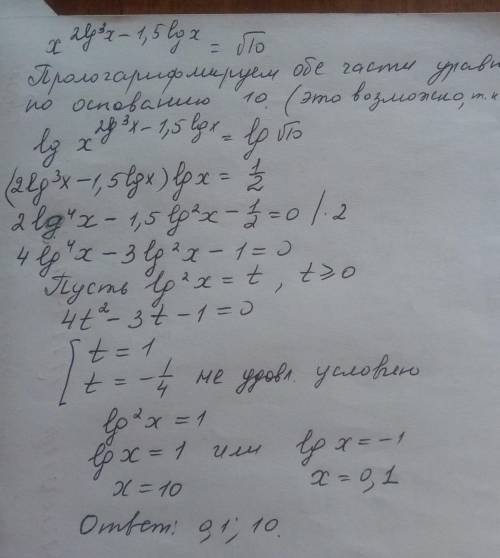 x^(2lg³x − 1,5lgx) = √10
Прологарифмируем обе части уравн
по основанию 10. (это возможно, т.к
lg x^(2lg³x − 1,5lgx) = lg √10
(2lg³x − 1,5lgx) lgx = 1/2
2lg⁴x − 1,5lg²x − 1/2 = 0 /·2
4lg⁴x − 3lg²x − 1 = 0
Пусть lg²x = t, t ⩾ 0
4t² − 3t − 1 = 0
[ t = 1
t = −1/4 не удовл. условию
lg²x = 1
lgx = 1 или lgx = −1
x = 10 x = 0,1
Ответ: 0,1; 10.